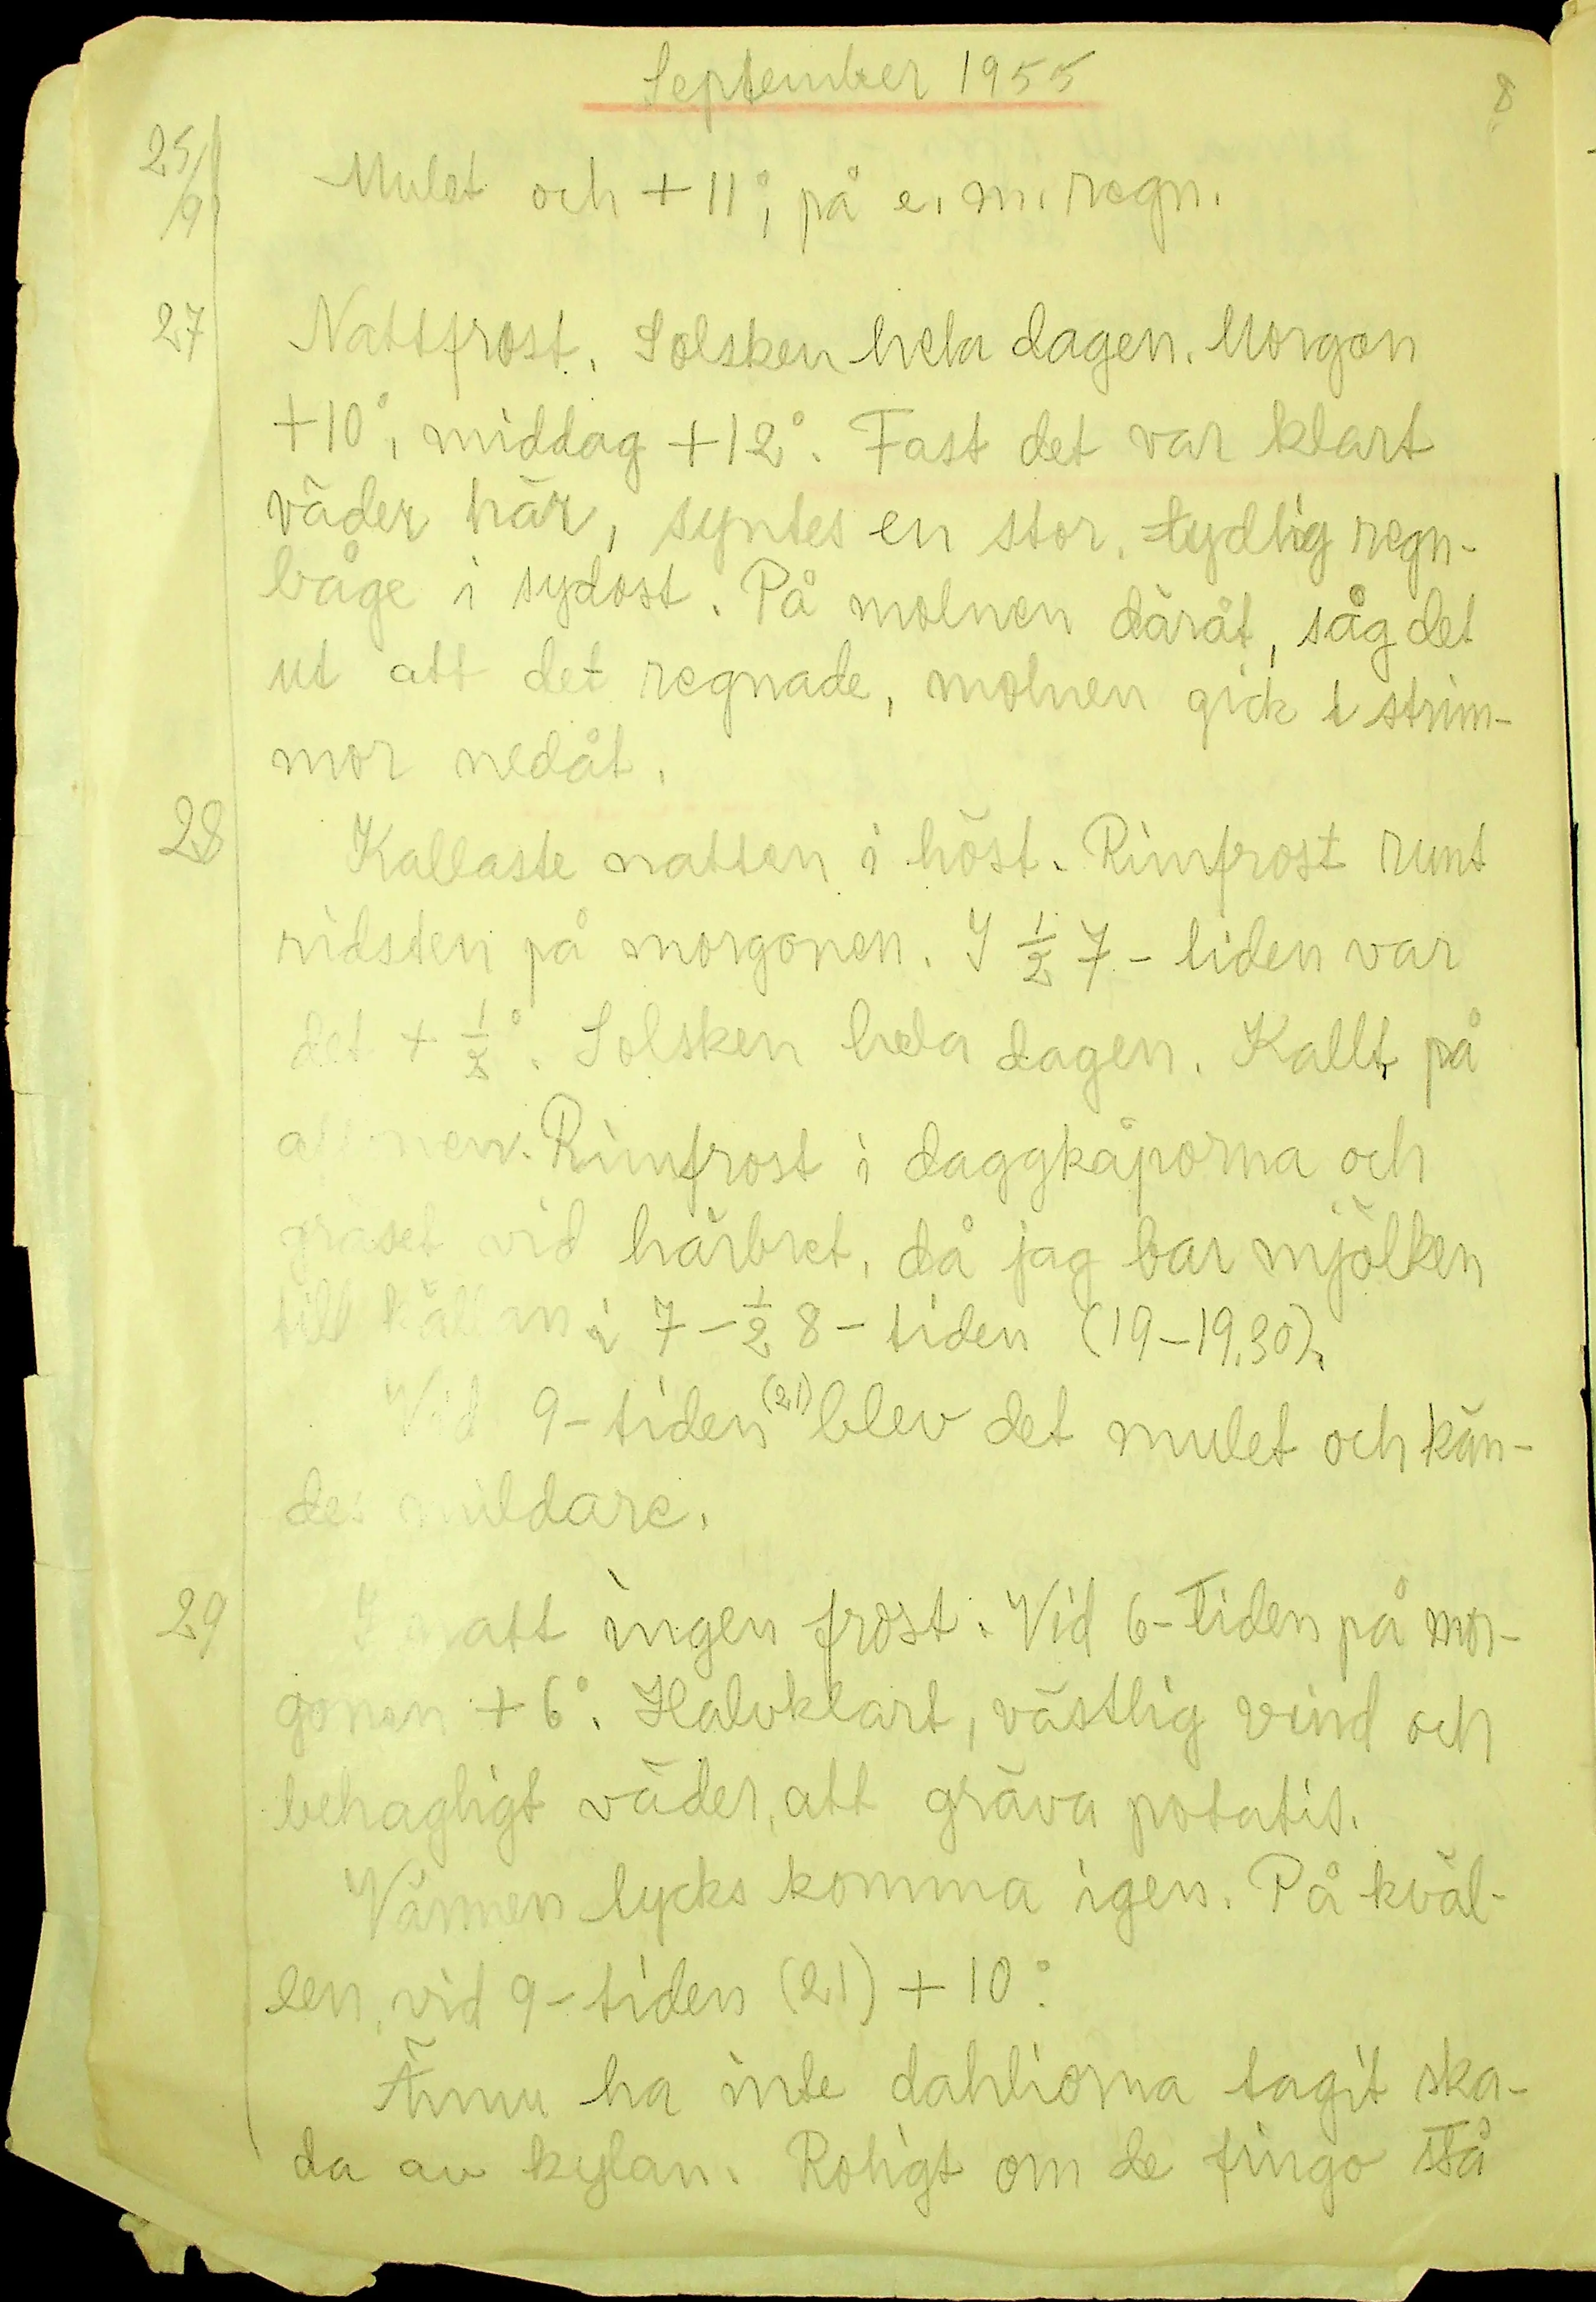 September 1955
8
25/9 Mulet och +11°, på e.m. regn.
27 Nattfrost. Solsken hela dagen. Morgon
+10°, middag +12°. Fast det var klart
väder här, syntes en stor, tydlig regn-
båge i sydost. På molnen däråt, såg det
ut att det regnade, molnen gick i strim-
mor nedåt.
28 Kallaste natten i höst. Rimfrost runt
ridsten på morgonen. I ½ 7-tiden var
det + ½°. Solsken hela dagen. Kallt på
aftonen. Rimfrost i daggkåporna och
gräset vid härbret, då jag bar mjölken
till källan i 7-½ 8-tiden (19-19.30).
Vid 9-tiden (21) blev det mulet och kän-
des mildare.
29 I natt ingen frost. Vid 6-tiden på mor-
gonen +6°. Halvklart, västlig vind och
behagligt väder, att gräva potatis.
Värmen lycks komma igen. På kväl-
len, vid 9-tiden (21) +10°.
Ännu ha inte dahliorna tagit ska-
da av kylan. Roligt om de fingo stå